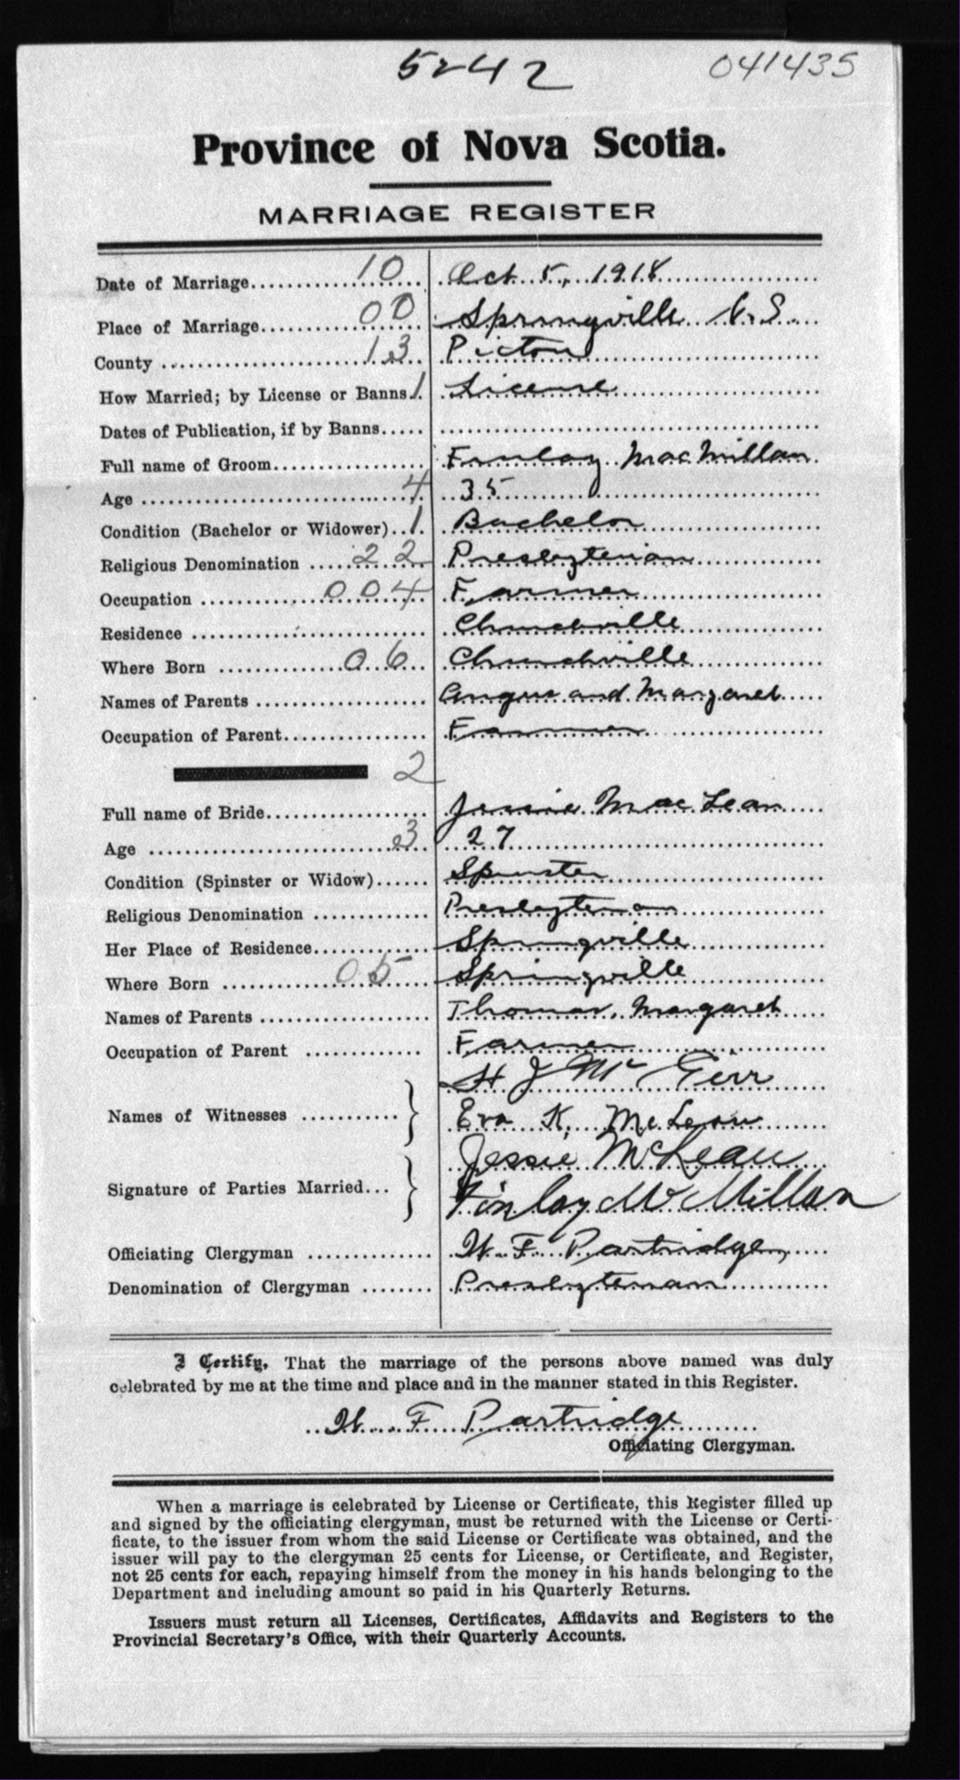 5242 041435
Province of Nova Scotia.
MARRIAGE REGISTER
Date of Marriage 10 Oct 5, 1918
Place of Marriage 00 Springville N.S.
County 13 Pictou
How Married; by License or Banns 1 License
Dates of Publication, if by Banns
Full name of Groom Finlay MacMillan
Age 4 35
Condition (Bachelor or Widower) 1 Bachelor
Religious Denomination 22 Presbyterian
Occupation 004 Farmer
Residence Churchville
Where Born 06 Churchville
Names of Parents Angus and Margaret
Occupation of Parent Farmer
2
Full name of Bride Jessie MacLean
Age 3 27
Condition (Spinster or Widow) Spinster
Religious Denomination Presbyterian
Her Place of Residence Springville
Where Born 05 Springville
Names of Parents Thomas, Margaret
Occupation of Parent Farmer
H J Mc Girr
Names of Witnesses Eva K. McLean
Jessie McLean
Signature of Parties Married Finlay McMillan
Officiating Clergyman W. F. Partridge,
Denomination of Clergyman Presbyterian
I Certify, That the marriage of the persons above named was duly
celebrated by me at the time and place and in the manner stated in this Register.
W. F. Partridge
Officiating Clergyman.
When a marriage is celebrated by License or Certificate, this Register filled up
and signed by the officiating clergyman, must be returned with the License or Certi-
ficate, to the issuer from whom the said License or Certificate was obtained, and the
issuer will pay to the clergyman 25 cents for License, or Certificate, and Register,
not 25 cents for each, repaying himself from the money in his hands belonging to the
Department and including amount so paid in his Quarterly Returns.
Issuers must return all Licenses, Certificates, Affidavits and Registers to the
Provincial Secretary's Office, with their Quarterly Accounts.